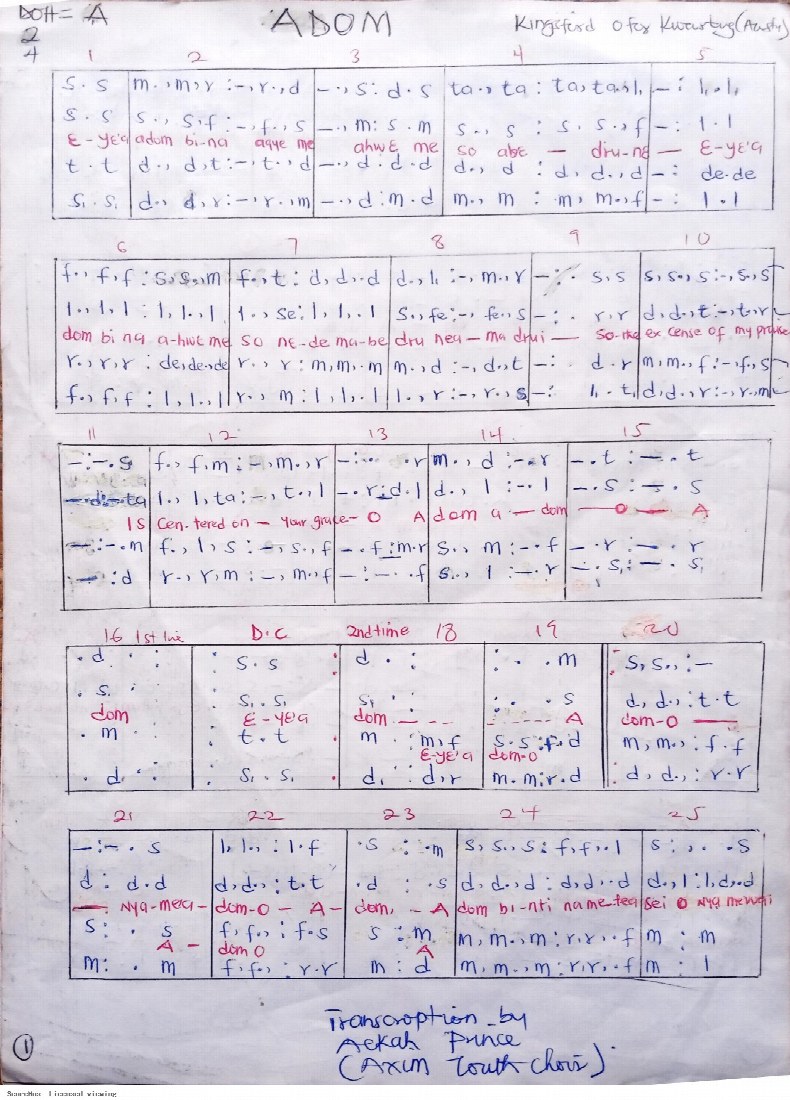 DOH = A
ADOM
Kingsford Ofori
2
4
1 2 3 4 5
s . s | m . , m , r : - , r . , d | - . , s : d . s | ta . , ta : ta , ta . s , l , | - : l , . l ,
s . s | s . , s , f : - , f . , s | - . , m : s . m | s . , s : s . s . , f | - : l . l
Ɛ - yɛ'a adom bi-na aqye me ahwɛ me so abe — dru-nɛ — Ɛ-yɛ'a
t . t | d . , d , t : - , t . , d | - . , d . d . d | d . , d : d , d . , d | - : de . de
s, . s, | d . , d , r : - , r . , m | - . , d : m . d | m . , m : m , m . , f | - : l . l
6 7 8 9 10
f . , f , f : s , s . , m | f . , t : d , d , . d | d . , l , : - , m . , r | - : . s , s | s , s . , s : - , s . , s
l . , l , l : l , l . , l | l . , se : l , l . l | s . , fe : - , fe . , s | - : . r . r | d , d . , t : - , t . , r
dom bi na a-hwɛ me so nɛ-de ma-be dru nea - ma drui — So-the ex cense of my
r . , r , r : de , de . de | r . , r : m , m . m | m . , d : - , d . , t | - : d . r | m , m . , f : - , f . , s
f . , f , f : l , l . , l | r . , m : l , l . l | l . , r : - , r . , s | - : l, . t, | d , d . , r : - , r . , m
11 12 13 14 15
- : - . s | f . , f , m : - , m . , r | - : - . r | m . , d : - . r | - . t : - . t
- d : - ta | l . , l , ta : - , t . , l | - . r : d . l | d . , l : - . l | - . s : - . s
is Cen-tered on - your grace - O A dom a - dom — O — A
- : - . m | f . , l , s : - , s . , f | - . f : m . r | s . , m : - . f | - . r : - . r
- : d | r . , r , m : - , m . , f | - : - . f | s . , l : - . r | - . s, : - . s,
16 1st line D.C 2nd time 18 19 20
. d . : | : s . s : | d . : | : . . m | : s , s . , : -
. s . : | : s, . s, | s, . : | : . . s | d , d . , : t . t
dom Ɛ-yɛ'a dom — A dom-O —
. m . : | : t . t | m : m , f | s . s : f . d | m , m . , : f . f
Ɛ-yɛ'a dom-O
. d . : | : s, . s, : | d, : d . r | m . m : r . d | : d , d . , : r . r
21 22 23 24 25
- : - . s | l , l . , : l . f | . s : . m | s , s . , s : f , f , . l | s : , . . s
d : d . d | d , d . , : t . t | . d : . s | d , d . , d : d , d , . d | d . , l : l , d . d
— Nya-mea - dom-O - A - dom, - A dom bi-nti na me-tea sei O Nya
s : . s | f , f . , : f . s | s : m | m , m . , m : r , r , . f | m : m
A - dom O A
m : . m | f , f . , : r . r | m : d | m , m . , m : r , r , . f | m : l
Transcroption by
Aekah Prince
(Axim Youth Choir)
1